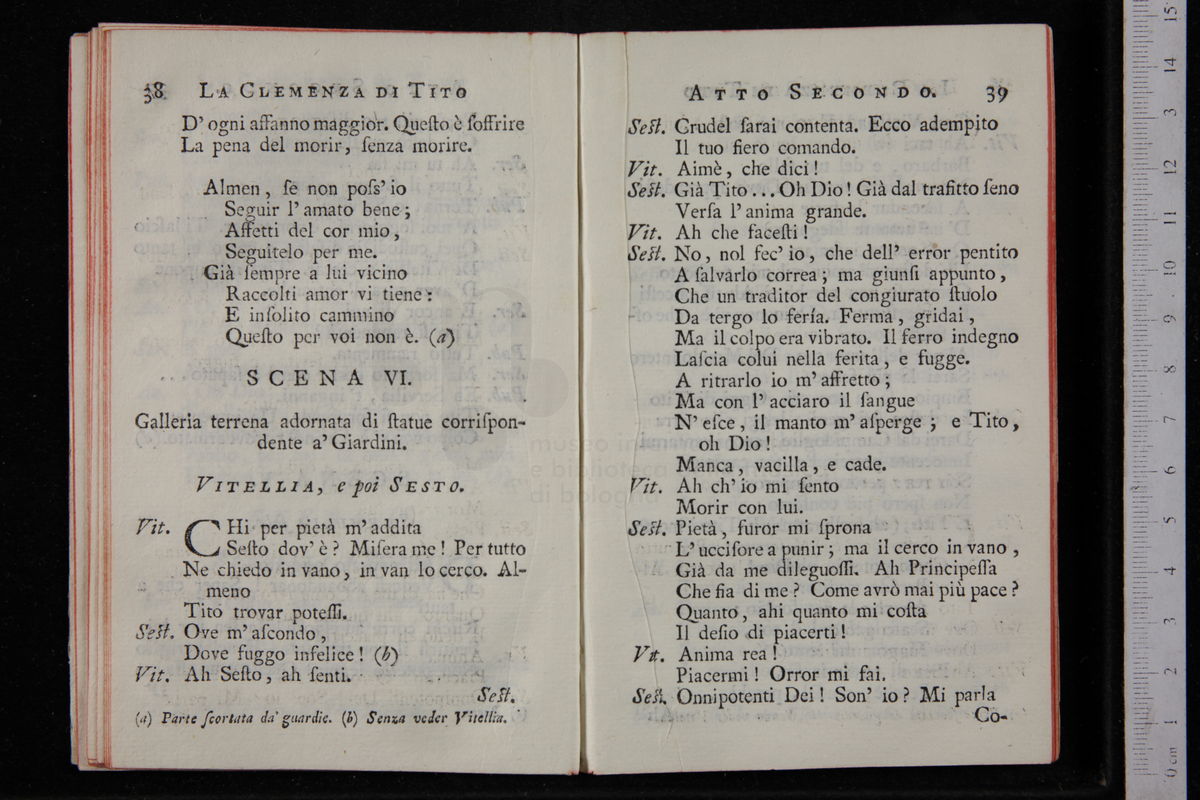 38 LA CLEMENZA DI TITO
D' ogni affanno maggior. Queſto è ſoffrire
La pena del morir, ſenza morire.
Almen, ſe non poſs' io
Seguir l' amato bene;
Affetti del cor mio,
Seguitelo per me.
Già ſempre a lui vicino
Raccolti amor vi tiene:
E inſolito cammino
Queſto per voi non è. (a)
SCENA VI.
Galleria terrena adornata di ſtatue corriſpon-
dente a' Giardini.
VITELLIA, e poi SESTO.
Vit. CHi per pietà m' addita
Seſto dov' è? Miſera me! Per tutto
Ne chiedo in vano, in van lo cerco. Al-
meno
Tito trovar poteſſi.
Seſt. Ove m' aſcondo,
Dove fuggo infelice! (b)
Vit. Ah Seſto, ah ſenti.
Seſt.
(a) Parte ſcortata da' guardie. (b) Senza veder Vitellia.
ATTO SECONDO. 39
Seſt. Crudel ſarai contenta. Ecco adempito
Il tuo fiero comando.
Vit. Aimè, che dici!
Seſt. Già Tito... Oh Dio! Già dal trafitto ſeno
Verſa l' anima grande.
Vit. Ah che faceſti!
Seſt. No, nol fec' io, che dell' error pentito
A ſalvarlo correa; ma giunſi appunto,
Che un traditor del congiurato ſtuolo
Da tergo lo ferìa. Ferma, gridai,
Ma il colpo era vibrato. Il ferro indegno
Laſcia colui nella ferita, e fugge.
A ritrarlo io m' affretto;
Ma con l' acciaro il ſangue
N' eſce, il manto m' aſperge; e Tito,
oh Dio!
Manca, vacilla, e cade.
Vit. Ah ch' io mi ſento
Morir con lui.
Seſt. Pietà, furor mi ſprona
L' ucciſore a punir; ma il cerco in vano,
Già da me dileguoſſi. Ah Principeſſa
Che fia di me? Come avrò mai più pace?
Quanto, ahi quanto mi coſta
Il deſio di piacerti!
Vit. Anima rea!
Piacermi! Orror mi fai.
Seſt. Onnipotenti Dei! Son' io? Mi parla
Co-